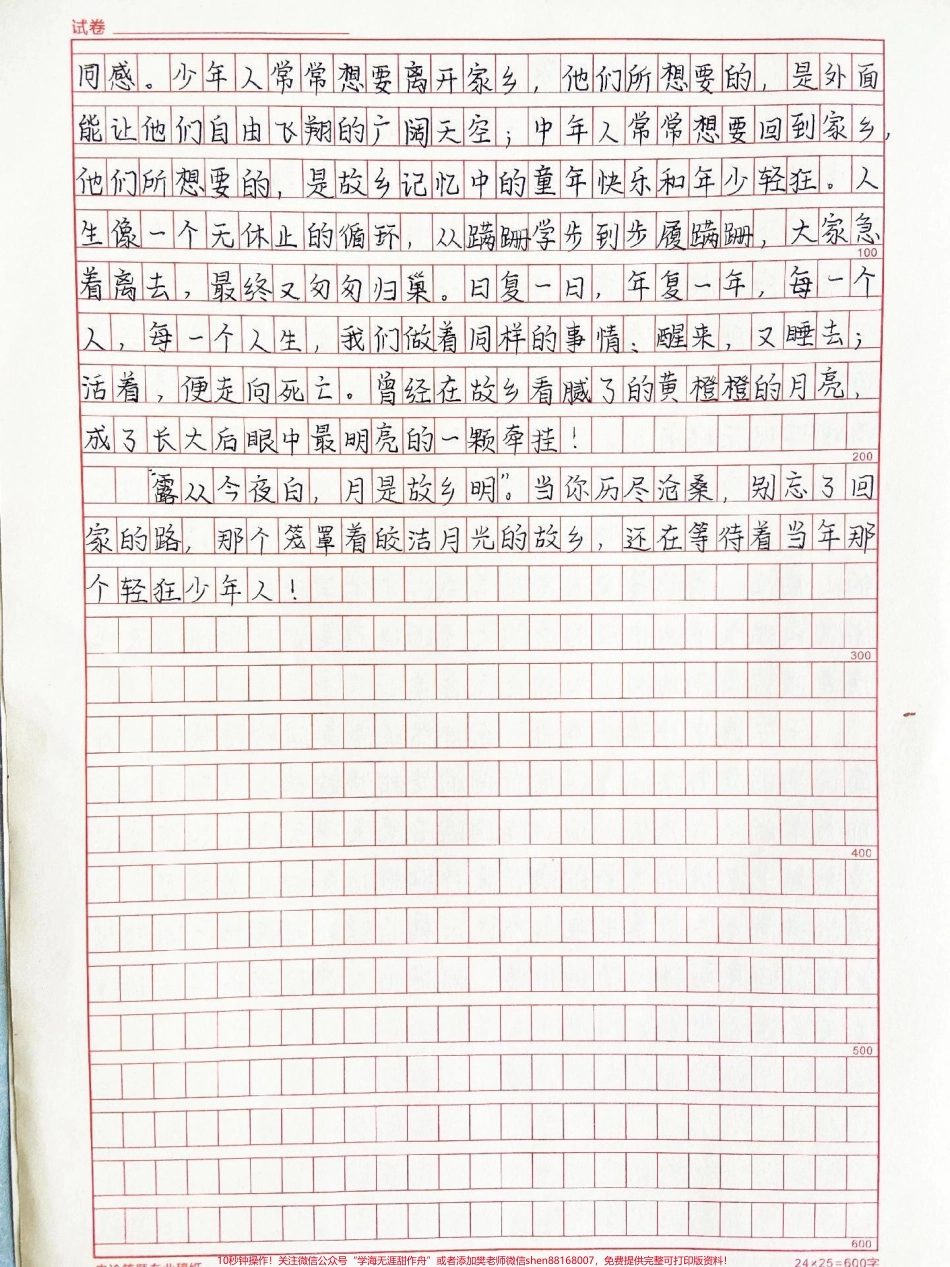 试卷
同感。少年人常常想要离开家乡，他们所想要的，是外面
能让他们自由飞翔的广阔天空；中年人常常想要回到家乡，
他们所想要的，是故乡记忆中的童年快乐和年少轻狂。人
生像一个无休止的循环，从蹒跚学步到步履蹒跚，大家急
100
着离去，最终又匆匆归巢。日复一日，年复一年，每一个
人，每一个人生，我们做着同样的事情：醒来，又睡去；
活着，便走向死亡。曾经在故乡看腻了的黄橙橙的月亮，
成了长大后眼中最明亮的一颗牵挂！
200
“露从今夜白，月是故乡明”。当你历尽沧桑，别忘了回
家的路，那个笼罩着皎洁月光的故乡，还在等待着当年那
个轻狂少年人！
300
400
500
600
10秒钟操作！关注微信公众号“学海无涯甜作舟”或者添加樊老师微信shen88168007，免费提供完整可打印版资料！
24×25=600字